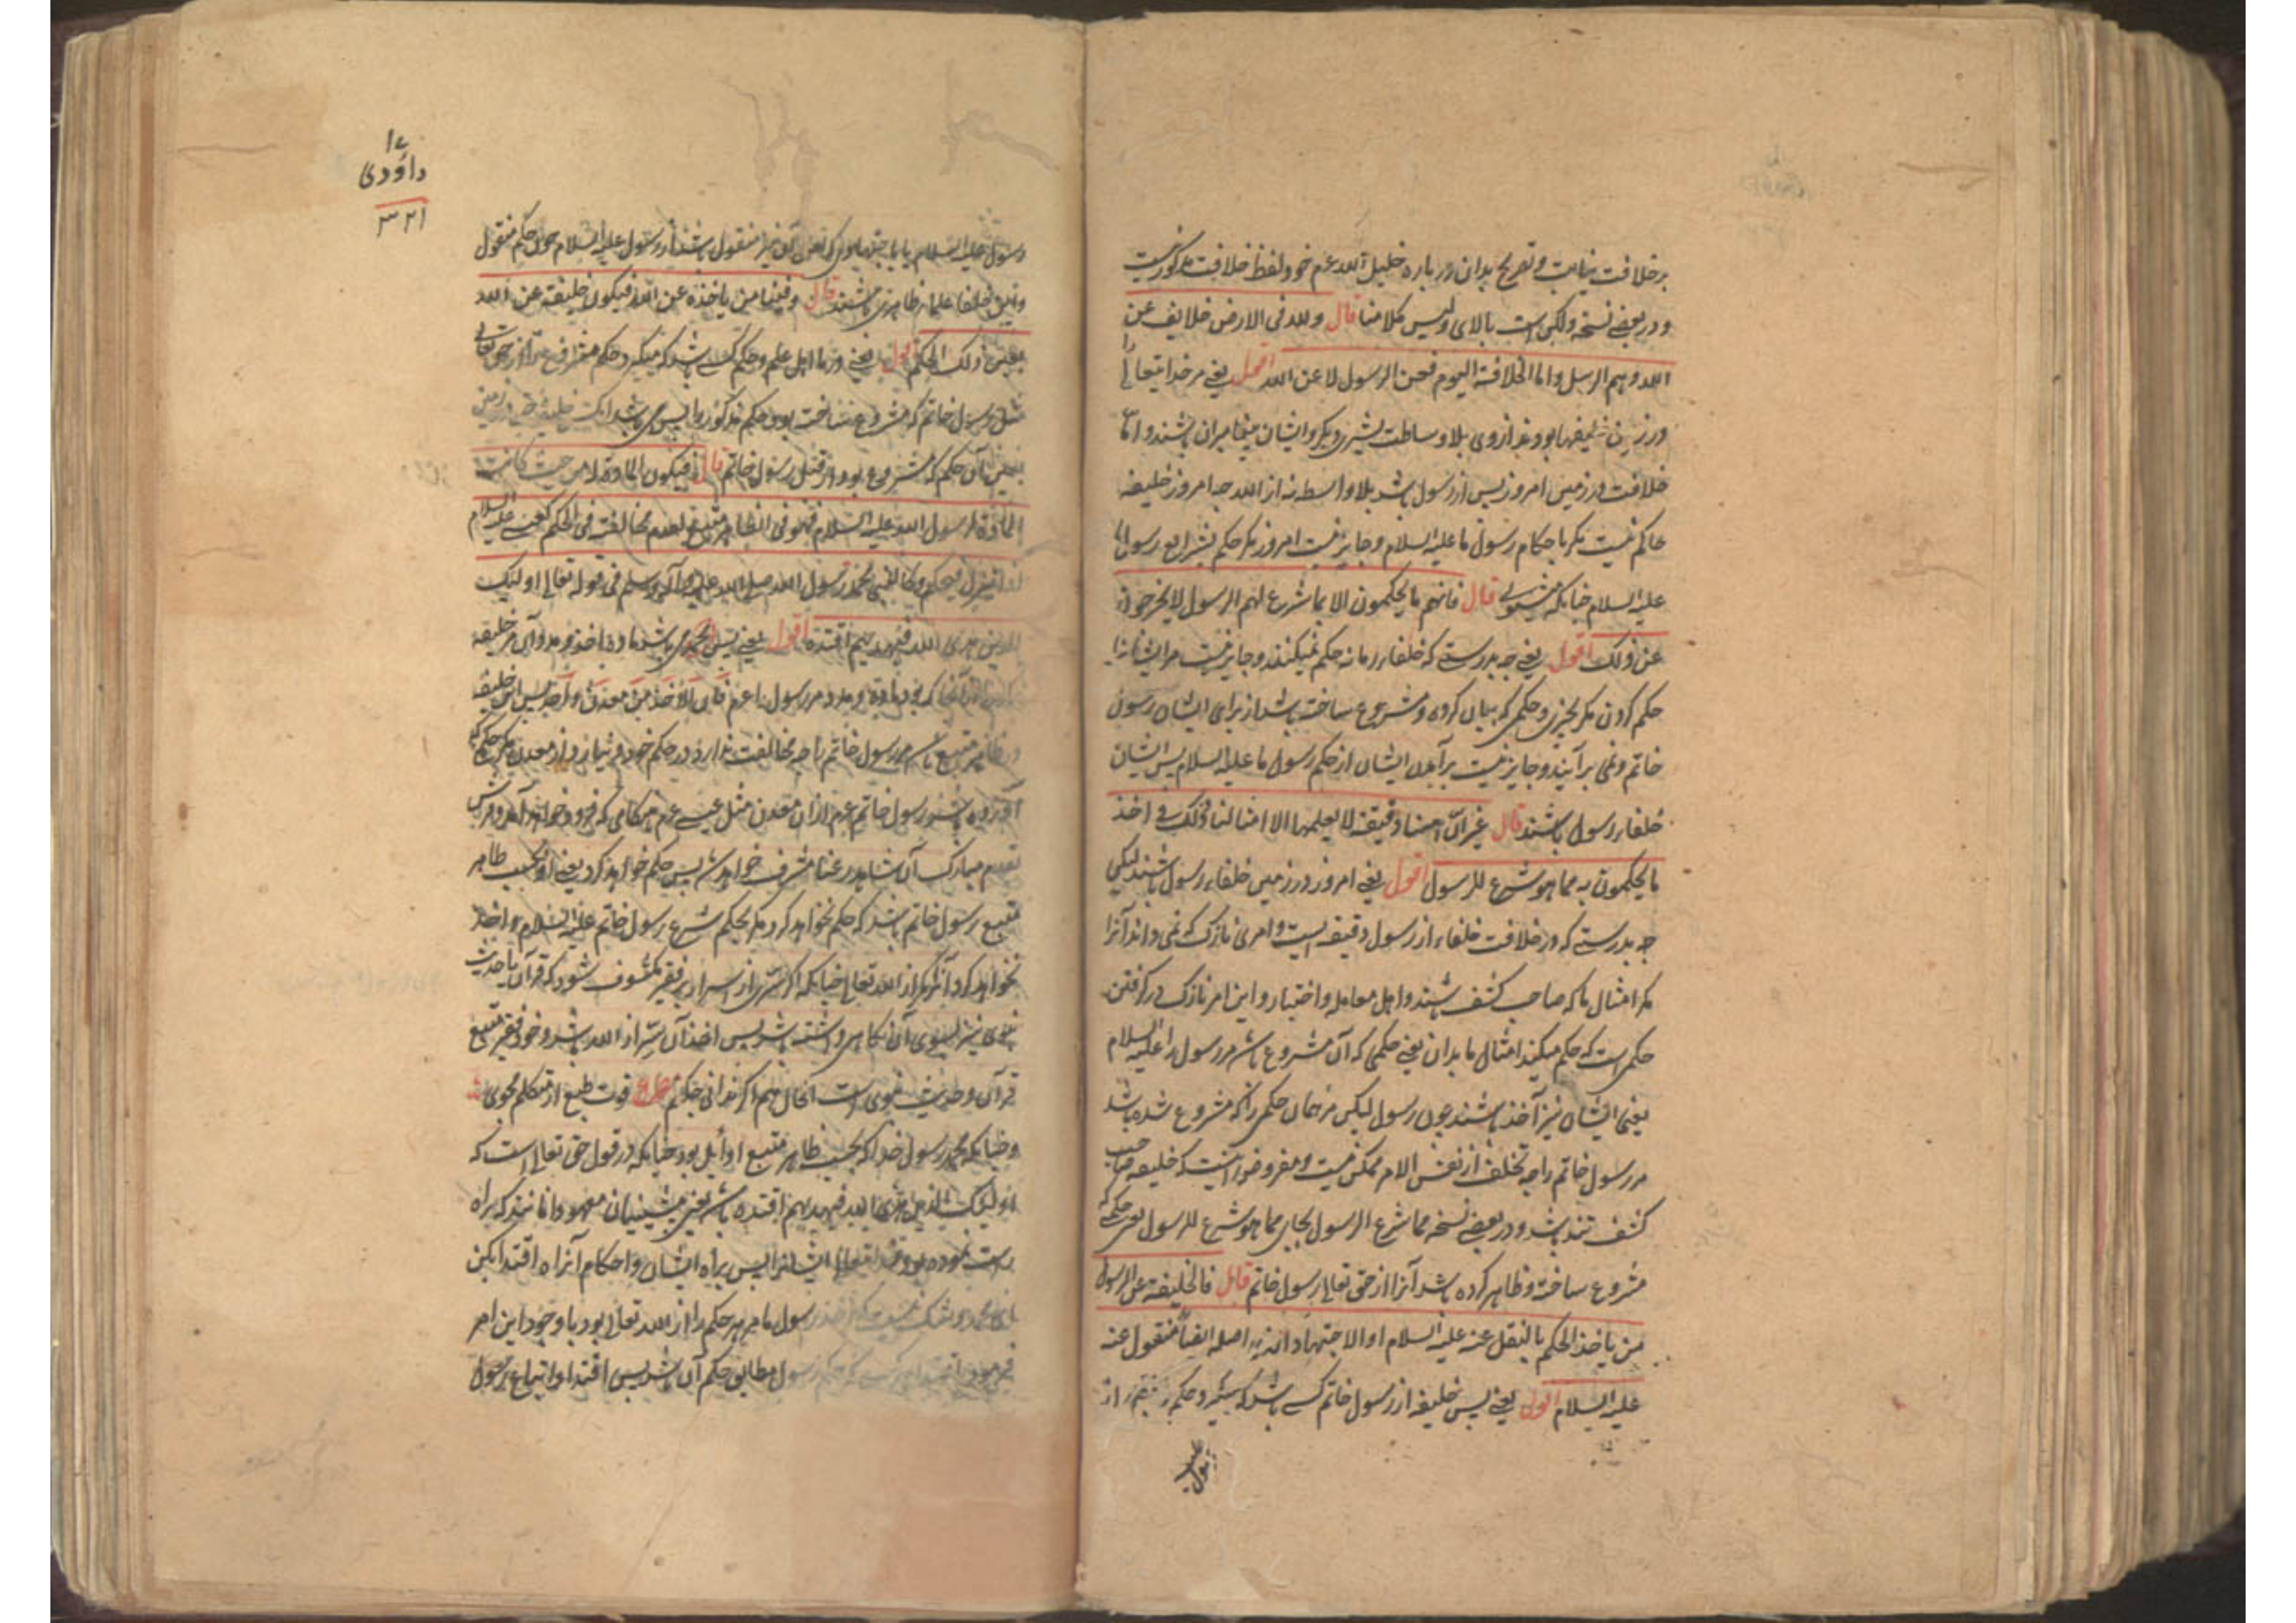 بر خلافت نیابت و تصریح بدان در باره خلیل الله عزم خود لفظ خلافت مذکور نیست
و در بعضی نسخه ولکن است بالای ولیس کلامنا قال ولله فی الارض خلایف عن
الله وهم الرسل واما الخلافة الیوم فعن الرسول لا عن الله اقول یعنی مر خدایتعالی را
در زمین خلیفها بودند از وی بلا وساطت بشری دیگر و ایشان پیغامبران باشند و اما
خلافت در زمین امروز پس از رسول باشد بلا واسطه نه از الله چه امروز خلیفه
حاکم نیست مگر باحکام رسول ما علیه السلام و جایز نیست امروز مگر حکم بشرایع رسول ما
علیه السلام چنانکه میشنوی قال فانهم ما یحکمون الا بما شرع لهم الرسول لا یخرجون
عن ذلک اقول یعنی چه بدرستی که خلفاء زمانه حکم نمیکنند و جایز نیست مر ایشانرا
حکم کردن مگر بچیزی و حکمی که بیان کرده و مشروع ساخته باشد از برای ایشان رسول
خاتم و نمی برآیند و جایز نیست برآمدن ایشان از حکم رسول ما علیه السلام پس ایشان
خلفاء رسول باشند قال غیر ان هنا دقیقة لا یعلمها الا امثالنا وذلک فی اخذ
ما یحکمون به مما هو شرع للرسول اقول یعنی امروز در زمین خلفاء رسول باشند لیکن
چه بدرستی که در خلافت خلفاء از رسول دقیقه ایست و امری نازک که نمی داند آنرا
مگر امثال ما که صاحب کشف باشند و اهل معامله و اختبار و این امر نازک در گرفتن
حکمی است که حکم میکنند امثال ما بدان یعنی حکمی که آن مشروع باشد مر رسول را علیه السلام
یعنی ایشان نیز آخذ باشند چون رسول لیکن مر همان حکمی را که مشروع شده باشد
مر رسول خاتم را چه تخلف از نفس الامر ممکن نیست و مفروض اینست که خلیفه صاحب
کشف تند باشد و در بعضی نسخه مما شرع الرسول بجای مما هو شرع للرسول یعنی حکمی که
مشروع ساخته و ظاهر کرده باشد آنرا از حق تعالی رسول خاتم قال فالخلیفة عن الرسول
من یاخذ الحکم بالنقل عنه علیه السلام او الاجتهاد الذی اصله ایضاً منقول عنه
علیه السلام اقول یعنی پس خلیفه از رسول خاتم کسی باشد که میگیرد حکم را از
۱۲
داودی
۳۲۱
رسول علیه السلام یا باجتهادی که اصل آن نیز منقول باشد از رسول علیه السلام چون حکم منقول
و این خلفا علماء ظاهری باشند قال وفینا من یاخذه عن الله فیکون خلیفة عن الله
بعین ذلک الحکم اقول یعنی و در ما اهل علم و حکم کسی باشد که میگیرد حکم مشروع را از حق تعالی
مثل رسول خاتم که مشروع ساخته بود حکم مذکور را پس می باشد این خلیفه حق در زمین
بعین آن حکم که مشروع بود از قبل رسول خاتم قال فیکون المادة له من حیث کانت
المادة لرسول الله علیه السلام فهو فی الظاهر متبع لعدم مخالفته فی الحکم کعیسی علیه السلام
اذا نزل فحکم وکالنبی محمد رسول الله صلی الله علیه وآله وسلم فی قوله تعالی اولئک
الذین هدی الله فبهدیهم اقتده اقول یعنی پس می باشد ماده اخذ و مدد آن مر خلیفه
بود ماده و مدد مر رسول را عزم فان الاخذ من معدن واحد پس این خلیفه
در ظاهر متبع باشد مر رسول خاتم را چه مخالفت ندارد در حکم خود و نیارد از معدن مگر حکم که
آورده باشد رسول خاتم عزم از آن معدن مثل عیسی عزم هنگامی که فرود خواهد آمد و فرش
بقدوم مبارک آن شاهد رعنا مشرف خواهد شد پس حکم خواهد کرد یعنی او بحسب ظاهر
متبع رسول خاتم باشد که حکم نخواهد کرد مگر بحکم شرع رسول خاتم علیه السلام و اخذ
نخواهد کرد آنرا مگر از الله تعالی چنانکه اگر سری از اسرار بر فقیر مکشوف شود که قرآن یا حدیث
نبوی نیز بسوی آن آگاهی داشته باشد پس اخذ آن سر از الله باشد و خود فقیر متبع
قرآن و حدیث نبوی است
و چنانکه محمد رسول خدا که بحسب ظاهر متبع اوایل بود چنانکه در قول حق تعالی است که
اولئک الذین هدی الله فبهدیهم اقتده باشد یعنی پیشینیان معهود آنانند که براه
راست نموده بود خدایتعالی ایشانرا پس براه ایشان و احکام آنرا اقتدا بکن
رسول ما مر هر حکم را از الله تعالی بود با وجود این امر
مطابق حکم آن باشد پس اقتدا و اتباع رسول